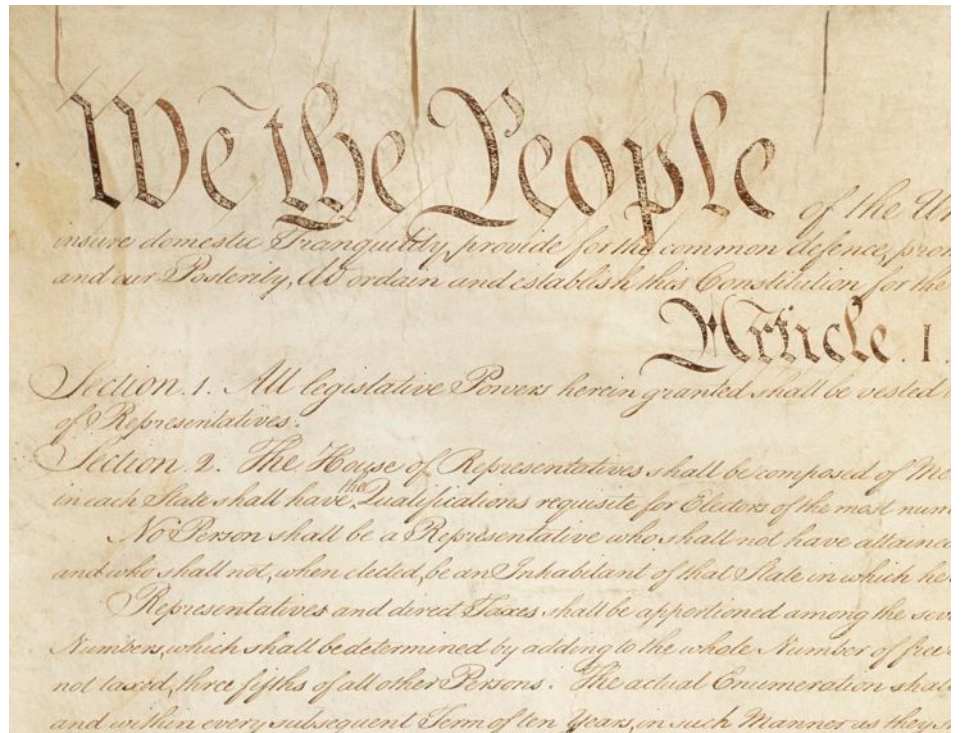 We the People of the Un
insure domestic Tranquility, provide for the common defence, prom
and our Posterity, do ordain and establish this Constitution for the
Article. I.
Section. 1. All legislative Powers herein granted shall be vested i
of Representatives.
Section. 2. The House of Representatives shall be composed of Me
in each State shall have the Qualifications requisite for Electors of the most num
No Person shall be a Representative who shall not have attained
and who shall not, when elected, be an Inhabitant of that State in which he
Representatives and direct Taxes shall be apportioned among the seve
Numbers, which shall be determined by adding to the whole Number of free
not taxed, three fifths of all other Persons. The actual Enumeration shall
and within every subsequent Term of ten Years, in such Manner as they sh